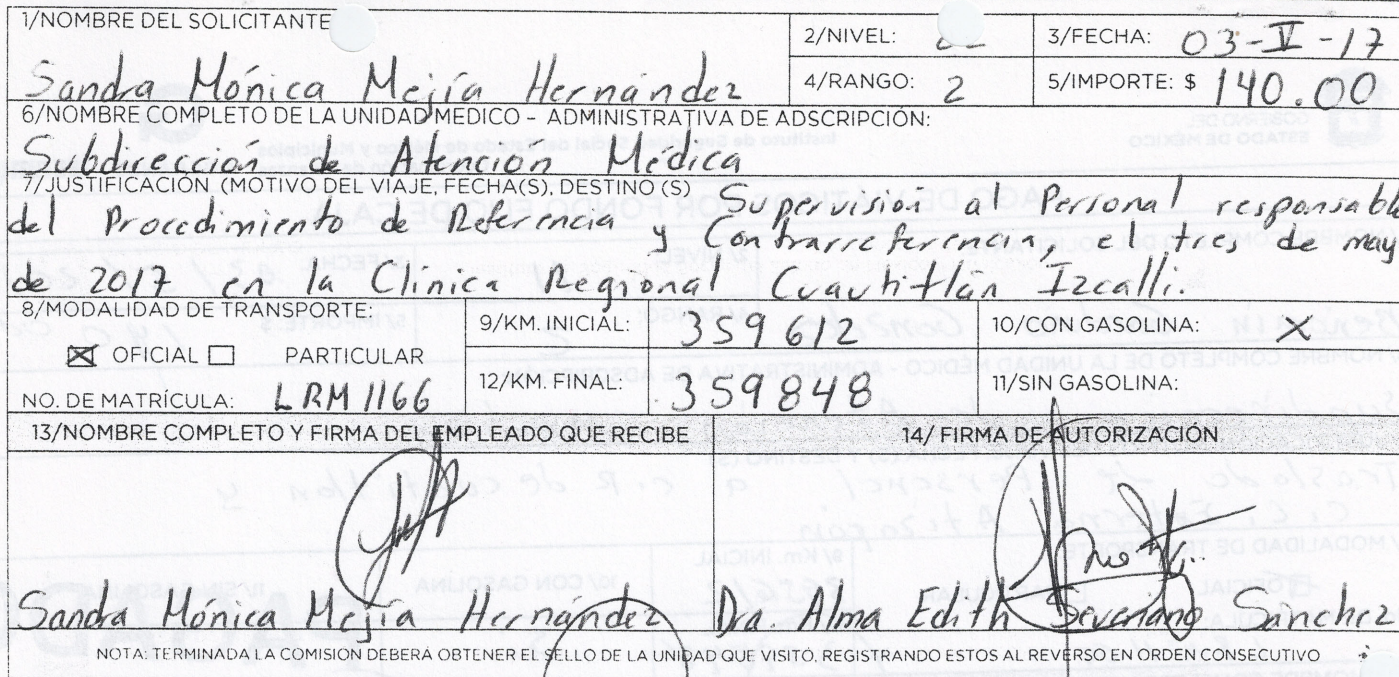 1/NOMBRE DEL SOLICITANTE
Sandra Mónica Mejía Hernández
2/NIVEL:
3/FECHA: 03-V-17
4/RANGO: 2
5/IMPORTE: $ 140.00
6/NOMBRE COMPLETO DE LA UNIDAD MEDICO - ADMINISTRATIVA DE ADSCRIPCIÓN:
Subdirección de Atención Médica
7/JUSTIFICACIÓN (MOTIVO DEL VIAJE, FECHA(S), DESTINO (S) Supervisión al Personal responsabl
del Procedimiento de Referencia y Contrarreferencia, el tres de may
de 2017 en la Clínica Regional Cuautitlán Izcalli.
8/MODALIDAD DE TRANSPORTE:
☒ OFICIAL ☐ PARTICULAR
NO. DE MATRÍCULA: LRM 1166
9/KM. INICIAL: 359612
10/CON GASOLINA: X
12/KM. FINAL: 359848
11/SIN GASOLINA:
13/NOMBRE COMPLETO Y FIRMA DEL EMPLEADO QUE RECIBE
14/ FIRMA DE AUTORIZACIÓN
Sandra Mónica Mejía Hernández
Dra. Alma Edith Severiano Sánchez
NOTA: TERMINADA LA COMISIÓN DEBERÁ OBTENER EL SELLO DE LA UNIDAD QUE VISITÓ, REGISTRANDO ESTOS AL REVERSO EN ORDEN CONSECUTIVO